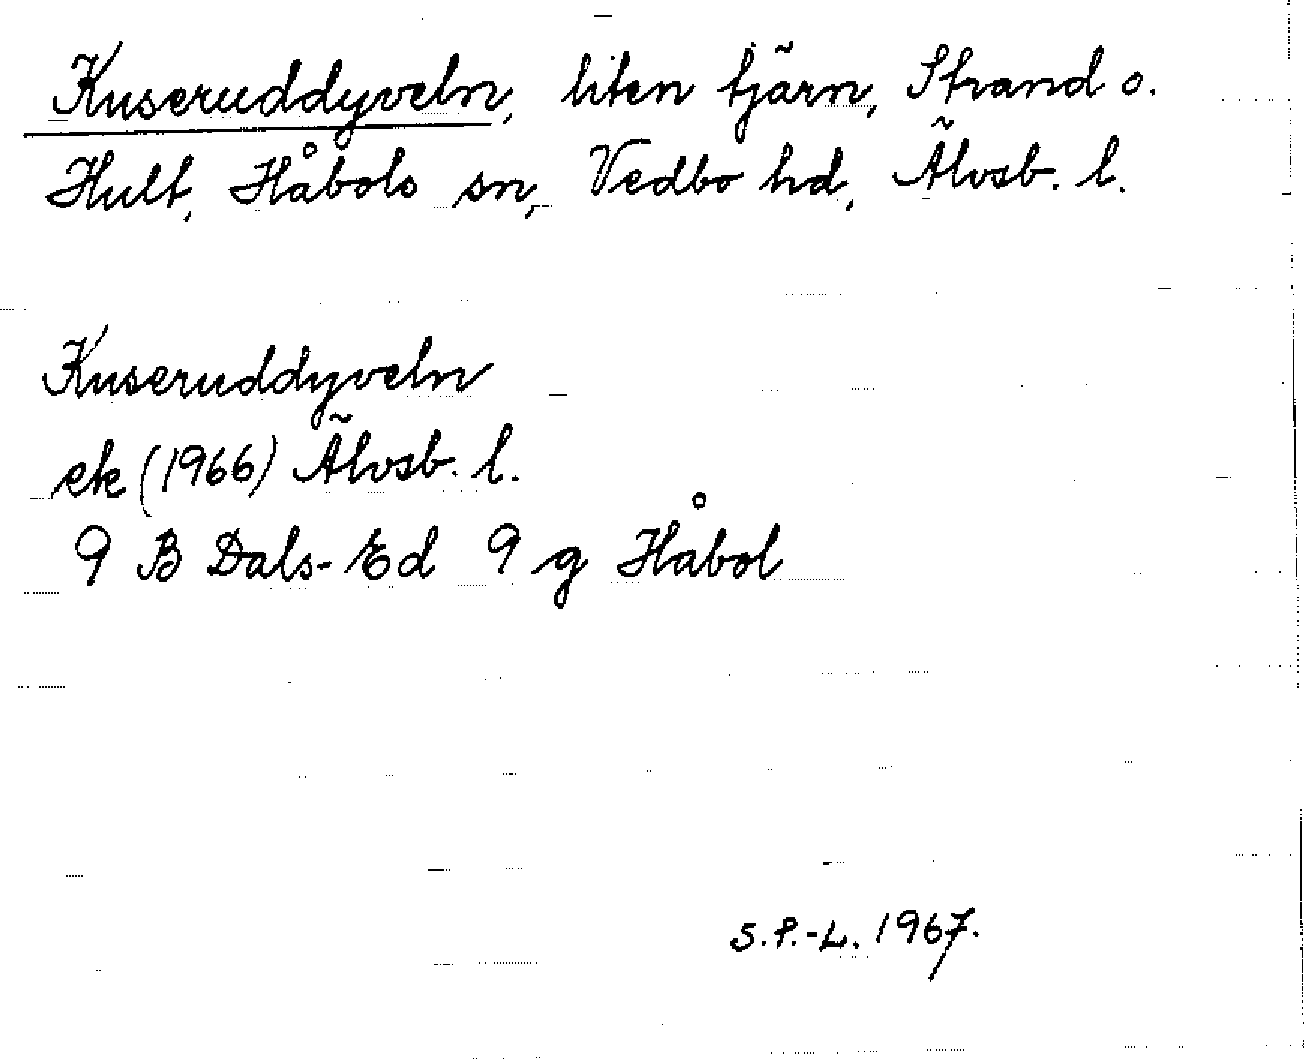 Kuseruddyveln, liten tjärn, Strand o.
Hult, Håbols sn, Vedbo hd, Älvsb. l.
Kuseruddyveln
ek (1966) Älvsb. l.
9 B Dals-Ed 9 g Håbol
S.P.-L. 1967.